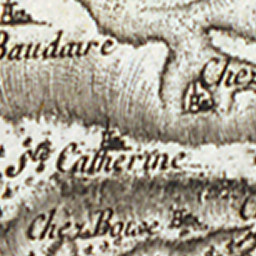 Baudaire
Chez
Ste. Catherine
Chez Bouse